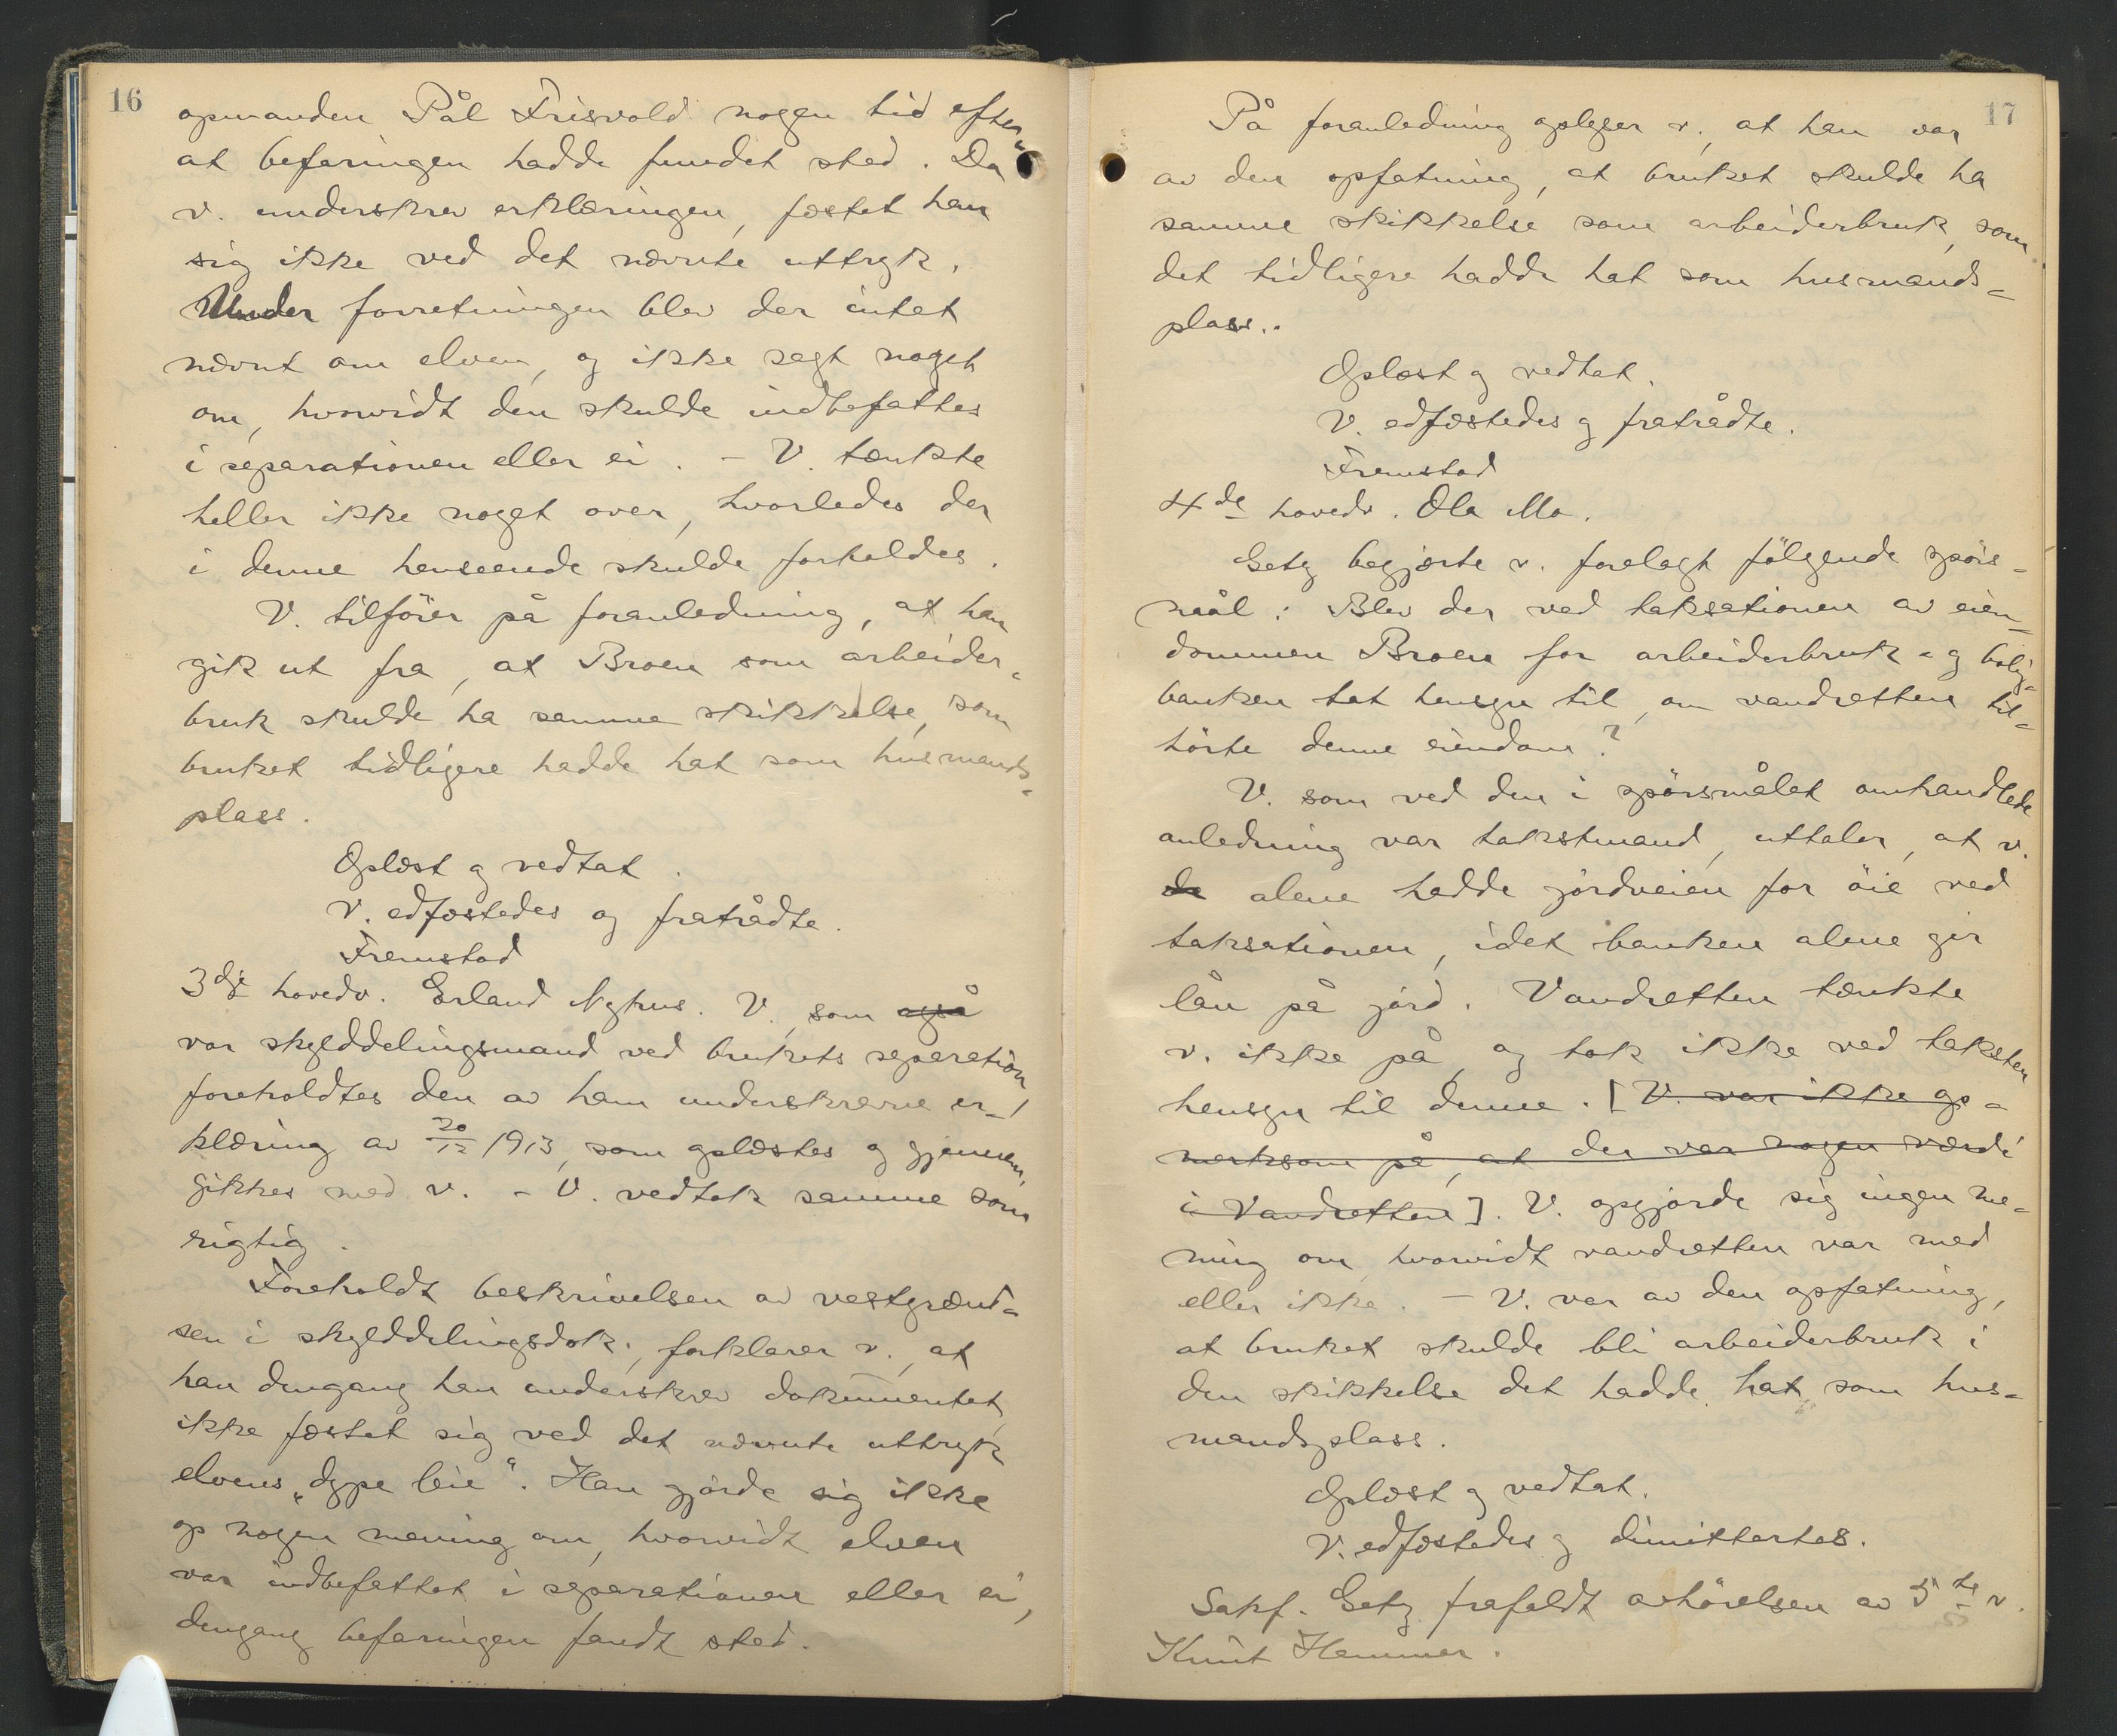 16
opmanden Pål Frisvold nogen tid efter
at befaringen hadde fundet sted. Da
v. underskrev erklæringen, fæstet han
sig ikke ved det nævnte uttryk.
Under forretningen blev der intet
nævnt om elven, og ikke sagt noget
om, hvorvidt den skulde indbefattes
i separationen eller ei. - V. tænkte
heller ikke noget over, hvorledes der
i denne henseende skulde forholdes.
V. tilföier på foranledning, at han
gik ut fra, at Broen som arbeider-
bruk skulde ha samme skikkelse, som
bruket tidligere hadde hat som husmands-
plass.
Oplæst og vedtat.
V. edfæstedes og fratrådte.
Fremstod
3dje hovedv. Erland Nyhus. V., som også
var skylddelingsmand ved brukets separation
foreholdtes den av ham underskrevne er-
klæring av 20/12 1913, som oplæstes og gjennem-
gikkes med v. - V. vedtok samme som
rigtig.
Foreholdt beskrivelsen av vestgrænd-
sen i skylddelingsdok., forklarer v., at
han dengang han underskrev dokumentet,
ikke fæstet sig ved det nævnte uttryk
elvens „dype leie“. Han gjorde sig ikke
op nogen mening om, hvorvidt elven
var indbefattet i separationen eller ei,
dengang befaringen fandt sted.
17
På foranledning oplyser v., at han var
av den opfatning, at bruket skulde ha
samme skikkelse som arbeiderbruk, som
det tidligere hadde hat som husmands-
plass.
Oplæst og vedtat.
V. edfæstedes og fratrådte.
Fremstod
4de hovedv. Ola Mo.
Getz begjærte v. forelagt fölgende spörs-
mål: Blev der ved taksationen av eien-
dommen Broen for arbeiderbruk- og bolig-
banken tat hensyn til, om vandretten til-
hörte denne eiendom?
V. som ved den i spörsmålet omhandlede
anledning var takstmand, uttaler, at v.
da alene hadde jordveien for öie ved
taksationen, idet banken alene gir
lån på jord. Vandretten tænkte
v. ikke på, og tok ikke ved taksten
hensyn til denne. [V. var ikke op-
merksom på, at der var nogen værdi
i vandretten]. V. opgjorde sig ingen me-
ning om, hvorvidt vandretten var med
eller ikke. - V. var av den opfatning,
at bruket skulde bli arbeiderbruk i
den skikkelse det hadde hat som hus-
mandsplass.
Oplæst og vedtat.
V. edfæstedes og dimittertes.
Sakf. Getz frafaldt avhörelsen av 5te v.
Knut Hemmer.